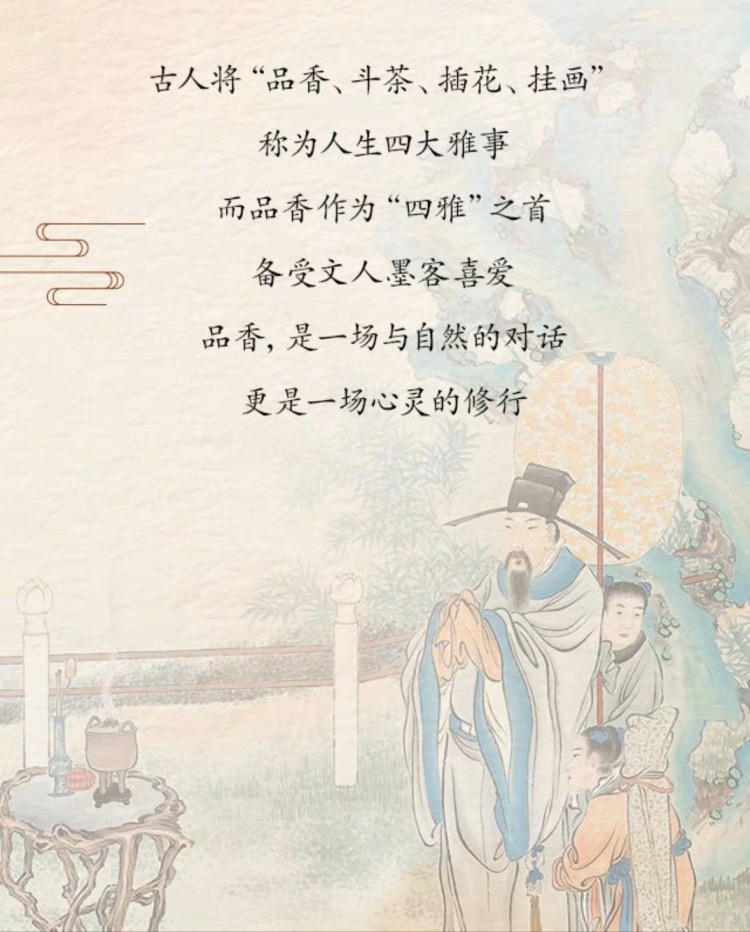 古人将“品香、斗茶、插花、挂画”
称为人生四大雅事
而品香作为“四雅”之首
备受文人墨客喜爱
品香，是一场与自然的对话
更是一场心灵的修行